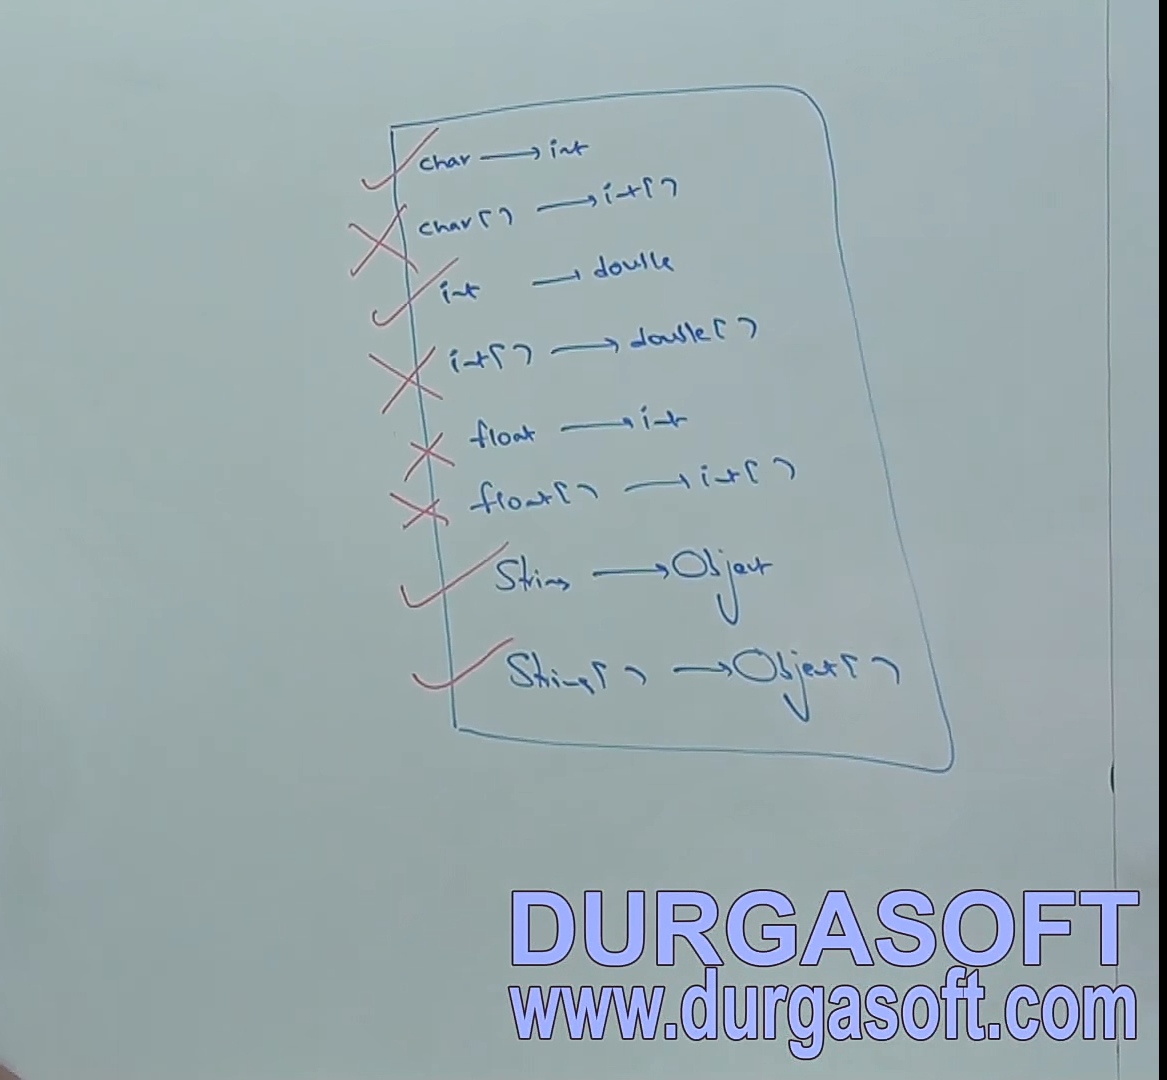 char → int
char[] → int[]
int → double
int[] → double[]
float → int
float[] → int[]
String → Object
String[] → Object[]
DURGASOFT
www.durgasoft.com